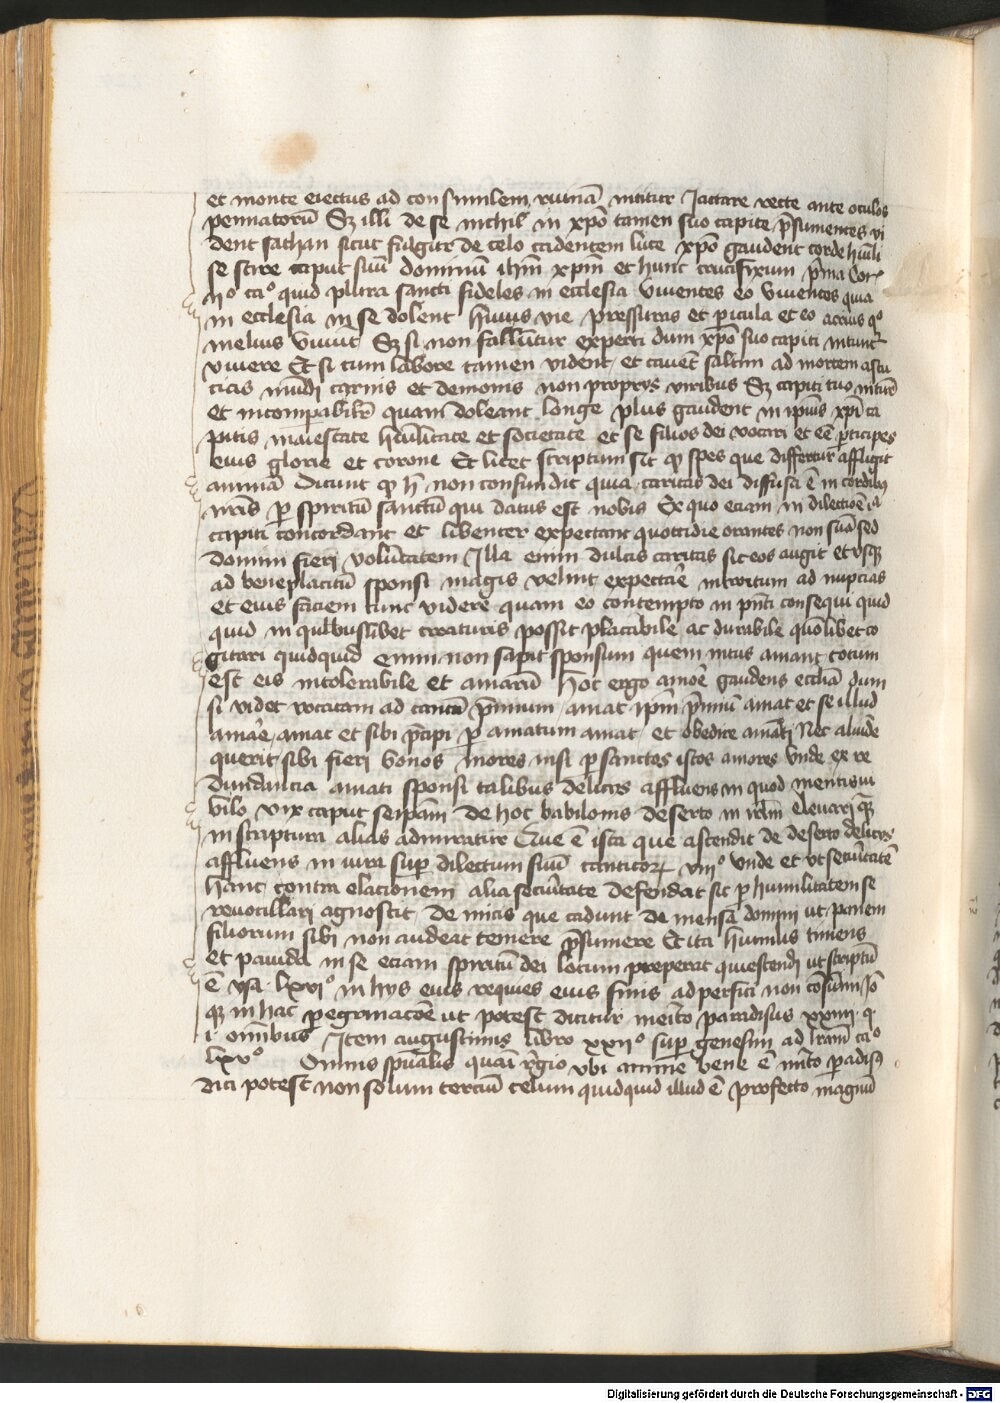 et monte eiectus ad consimilem ruinā nititur Jactare recte ante oculos
pennatorū Sꝫ illi de se nichil in xp̄o tamen suo capite p̄sumentes vi
dent sathan sicut fulgur de celo cadentem luce xp̄o gaudent corde hūili
se scire caput suū dominū ihm̄ xpm̄ et hunc crucifixum p̄ma Cor
nº caº quid plura sancti fideles in ecclesia viuentes eo viuentes quia
in ecclesia in se dolent huius vie pressuras et pericula et eo acrius qº
melius viuūt Sꝫ si non fallūtur experti dum xp̄o suo capiti nitunt᷑
viuere Et si cum labore tamen vident et cauēt saltim ad mortem astu
cias mūdi carnis et demonis non proprijs viribus Sꝫ capiti suo nitunt᷑
et incompabilit᷑ quam doleant longe plus gaudent in ipīus xp̄i ca
pitis maiestate hūilitate et societate et se filios dei vocari et eē p̄ticipes
eius glorie et corone Et licet scriptum sit ꝙ spes que differtur affligit
animā Dicunt ꝙ h̄ non confundit quia caritas dei diffusa ē in cordibꝫ
nr̄is ꝑ spiritū sanctū qui datus est nobis Ex quo eciam in dilectiōe
capiti concordant et libenter expectant quottidie orantes non suā sed
domini fieri volūtatem Illa enim dulcis caritas sic eos augit et vsqꝫ
ad beneplacitū sponsi magis velint expectāre introitum ad nupcias
et eius faciem tunc videre quam eo contempto in pn̄ti consequi quid
quid in quibuslibet creaturis possit placabile ac durabile quōlibet co
gitari quidquid enim non sapit sponsum quem intus amant totum
est eis intolerabile et amarū Hoc ergo amōe gaudens eccliā dum
si videt vocatam ad tantū p̄mium amat ipm̄ p̄miū amat et se illud
amāre amat et sibi p̄cipi ꝑ amatum amat et obedire amāti Nec aliude
querit sibi fieri bonos mores nisi ꝑ sanctos istos amores Vnde ex re
dundancia amati sponsi talibus delicijs affluens in quod mentis iu
bilo vix caput seipam̄ de hoc babilonis deserto in irl̄m eleuari
in scriptura alias admiratur Que ē ista que ascendit de deserto delicijs
affluens in nixa sup̱ dilectum suū canticoꝝ viijº Vnde et vt secūtatē
hanc contra elacionem alia secūtate defendat sic ꝑ humilitatem se
reuocillari agnoscit de micis que cadunt de mensā domini ut panem
filiorum sibi non audeat temere p̄sumere Et ita humilis timens
et pauida in se eciam spiritū dei locum preperat quiescendi ut scriptū
ē ysa lxviº in hijs eius requies eius finis ad perfici non
qꝫ in hac ꝑegrinacōe ut potest dicitur meīto paradisus xxiiij q
i omībus Item augustinus libro xxijº sup̱ genesim ad lr̄am caº
lxvº Omnis sp̄ualis quasi r̄gio vbi anime bene ē mīto paradisꝰ
dici potest non solum terciū celum quidquid illud ē profecto magnū
Digitalisierung gefördert durch die Deutsche Forschungsgemeinschaft - DFG